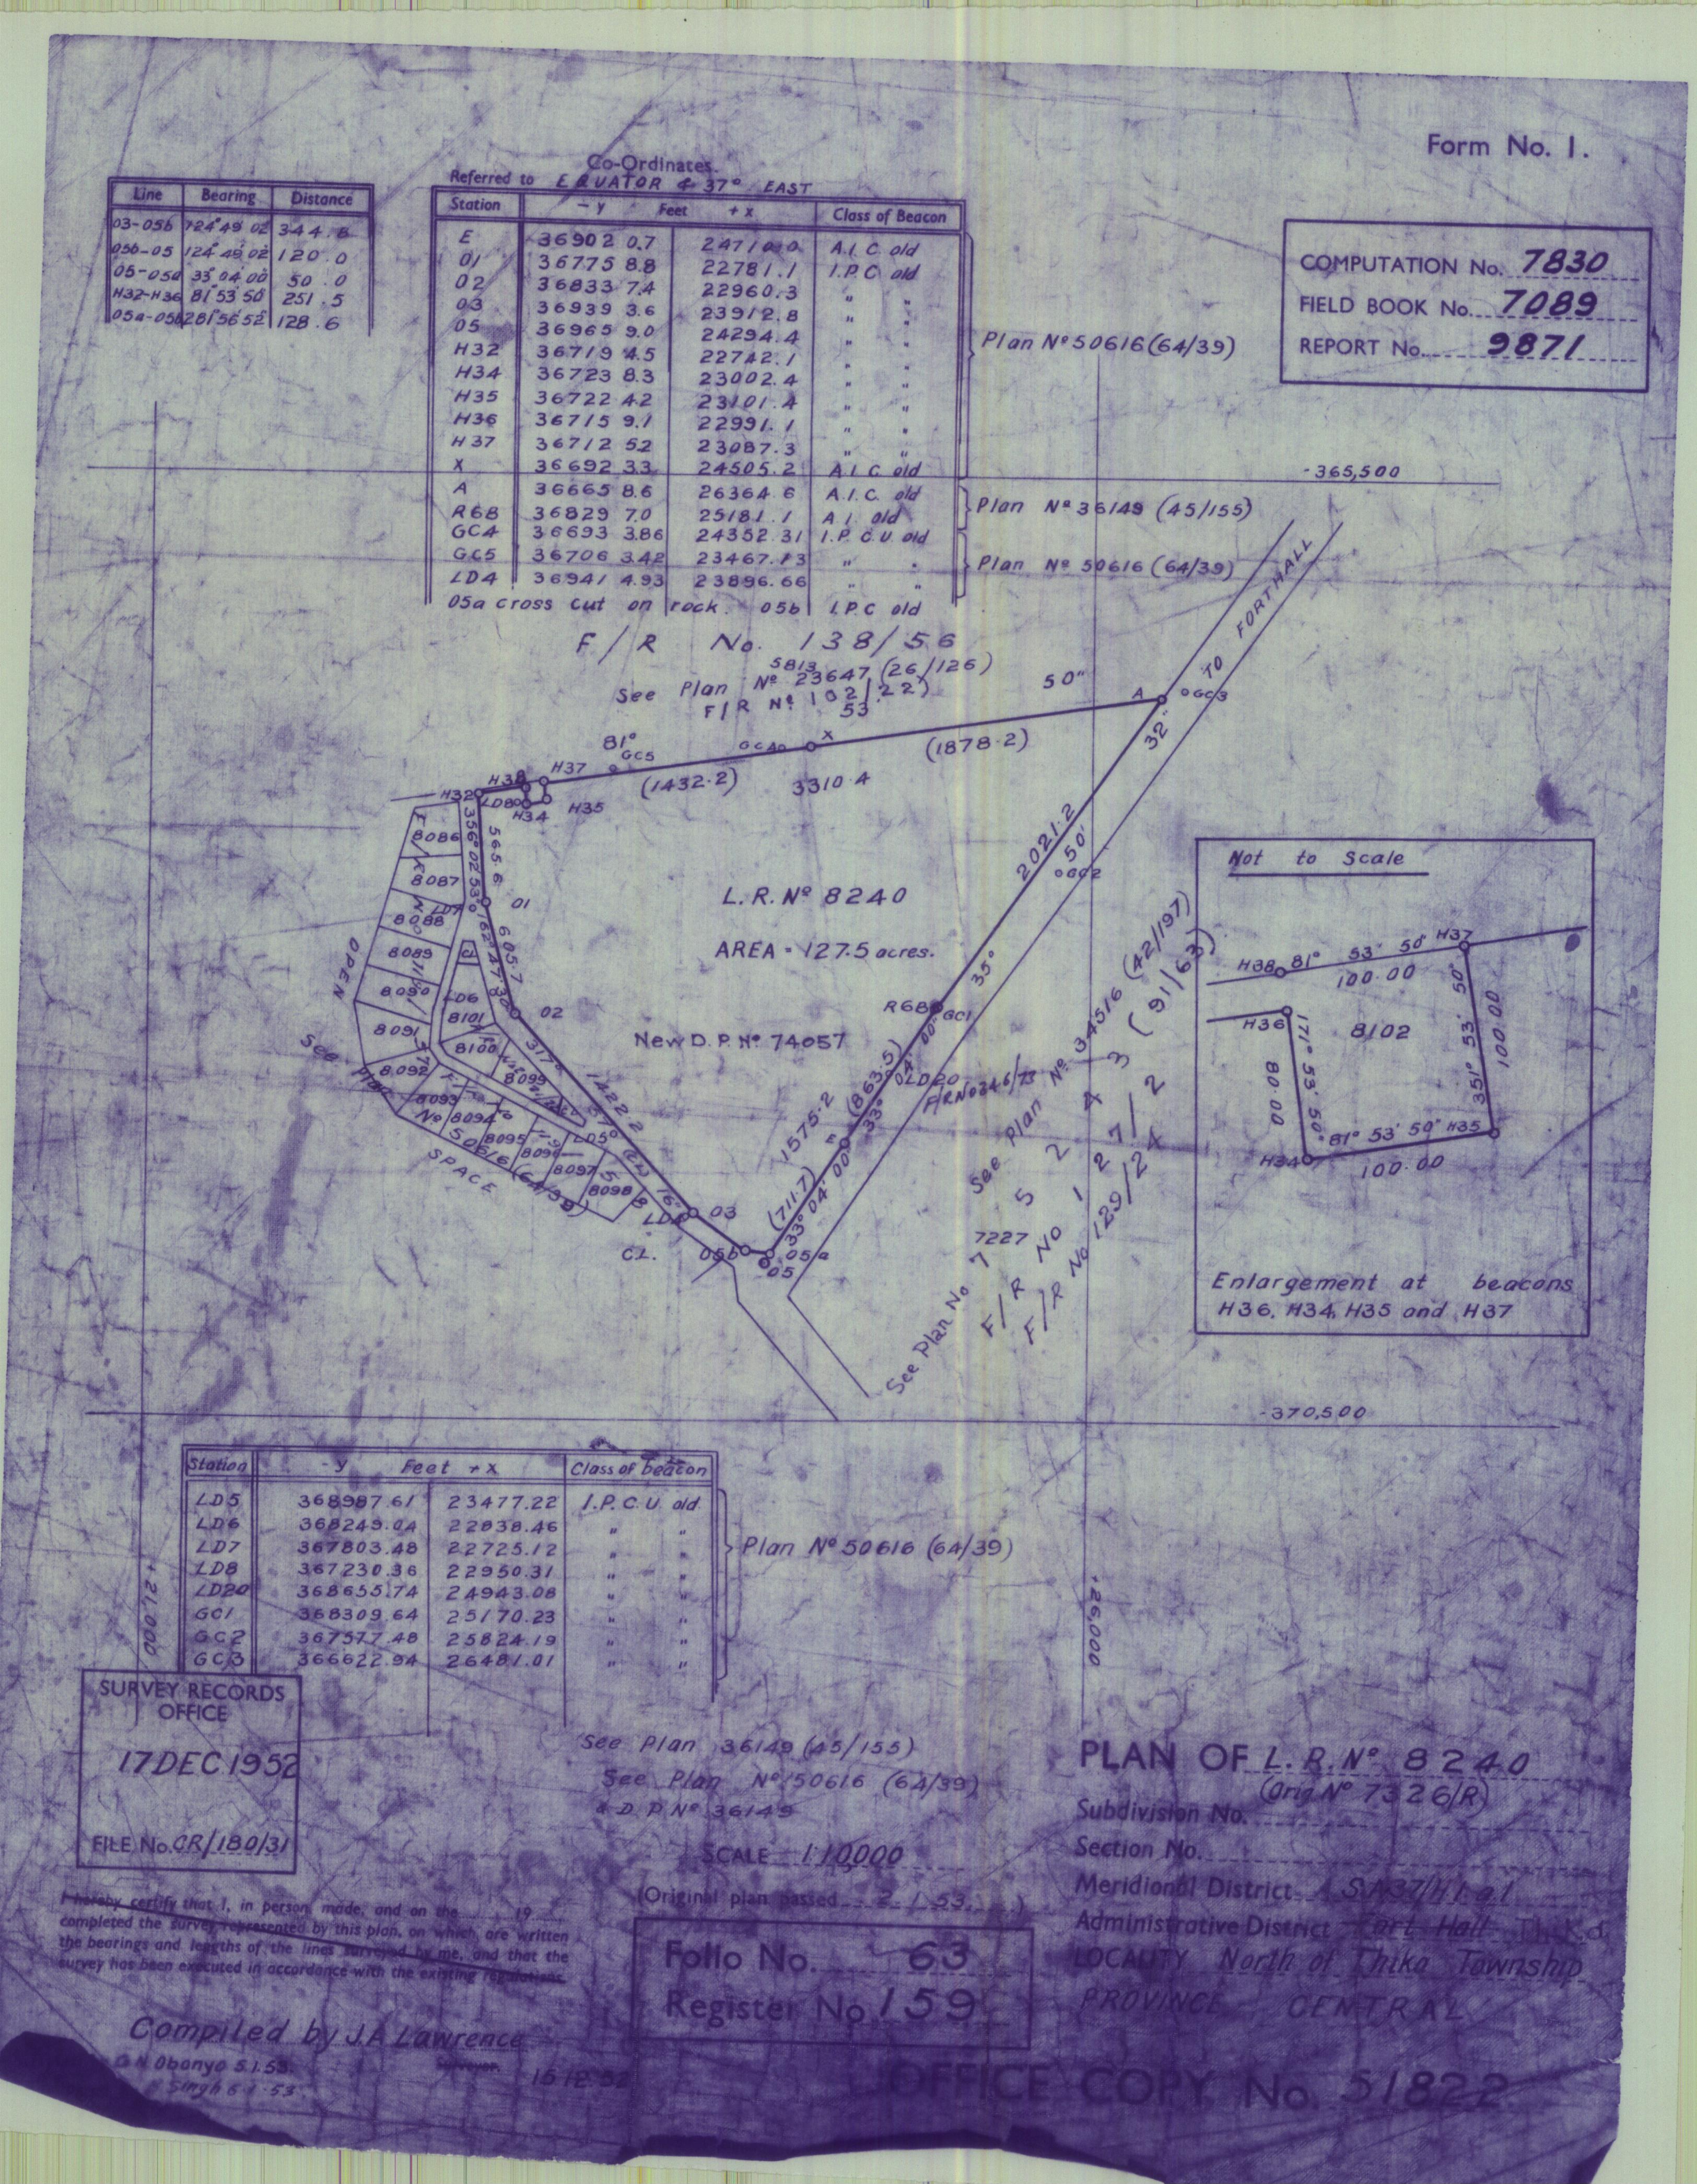 Form No. 1.
Line Bearing Distance
03-05b 124° 49' 02" 344.8
05b-05 124 49 02 120.0
05-05a 33 04 00 50.0
H32-H36 81 53 50 251.5
05a-05b 281 56 52 128.6
Co-Ordinates.
Referred to EQUATOR & 37° EAST
Station - y Feet + x Class of Beacon
E 36902 0.7 24710.0 A.I.C. old
01 36775 8.8 22781.1 I.P.C old
02 36833 7.4 22960.3 " "
03 36939 3.6 23912.8 " "
05 36965 9.0 24294.4 " "
H32 36719 4.5 22742.1 " "
H34 36723 8.3 23002.4 " "
H35 36722 4.2 23101.4 " "
H36 36715 9.1 22991.1 " "
H37 36712 5.2 23087.3 " "
X 36692 3.3 24505.2 A.I.C old
Plan Nº 50616 (64/39)
A 36665 8.6 26364.6 A.I.C. old
R68 36829 7.0 25181.1 A.I. old
Plan Nº 36149 (45/155)
GC4 36693 3.86 24352.31 I.P.C.U. old
GC5 36706 3.42 23467.13 " "
LD4 36941 4.93 23896.66 " "
Plan Nº 50616 (64/39)
05a cross cut on rock. 05b I.P.C old
COMPUTATION No. 7830
FIELD BOOK No. 7089
REPORT No. 9871
-365,500
F/R No. 138/56
5813
See Plan Nº 23647 (26/126)
F/R Nº 102/22)
53
TO FORTHALL
A
GC3
50"
32'
X
GC4
(1878.2)
81°
GC5
(1432.2)
3310.4
H37
H38
H32
LD8
H34
H35
356° 02' 53"
565.6
01
LD7
162° 47' 30"
605.7
02
317°
1422.2
16"
03
LD4
05b
05a
05
C.L.
2021.2
50'
GC2
35°
R68
GC1
(863.5)
33° 04' 00"
LD20
F/R No 246/73
1575.2
E
(711.7)
33° 04' 00"
L.R. Nº 8240
AREA = 127.5 acres.
New D.P. Nº 74057
8086
8087
8088
8089
8090
8091
8092
8093
8094
8095
8096
8097
8098
8099
8100
8101
LD6
LD5
OPEN
SPACE
See Plan Nº 50616 (64/39)
See Plan Nº 34516 (42/197)
7227
See Plan No 75243 (91/63)
F/R No 127/2
F/R No 129/24
Not to Scale
H38 81° 53' 50" H37
100.00
H36
8102
171° 53' 50"
80.00
351° 53' 50"
100.00
H34 81° 53' 50" H35
100.00
Enlargement at beacons
H36, H34, H35 and H37
-370,500
Station - y Feet + x Class of beacon
LD5 368987.61 23477.22 I.P.C.U. old
LD6 368249.04 22838.46 " "
LD7 367803.48 22725.12 " "
LD8 367230.36 22950.31 " "
LD20 368655.74 24943.08 " "
GC1 368309.64 25170.23 " "
GC2 367577.48 25824.19 " "
GC3 366622.94 26481.01 " "
Plan Nº 50616 (64/39)
+21,000
+26,000
SURVEY RECORDS
OFFICE
17 DEC 1952
FILE No. CR/180/31
See Plan 36149 (45/155)
See Plan Nº 50616 (64/39)
& D.P. Nº 36149
SCALE 1:10,000
(Original plan passed 2.1.53.)
Folio No. 63
Register No. 159
PLAN OF L.R. Nº 8240
(Orig. Nº 7326/R)
Subdivision No.
Section No.
Meridional District SA37/H.1.a.1
Administrative District Fort Hall Thika
LOCALITY North of Thika Township
PROVINCE CENTRAL
I hereby certify that I, in person, made, and on the 19
completed the survey represented by this plan, on which are written
the bearings and lengths of the lines surveyed by me, and that the
survey has been executed in accordance with the existing regulations.
Compiled by J.A. Lawrence
Surveyor.
G N Obonyo 5.1.53.
Singh 6.1.53
15.12.52
OFFICE COPY No. 51822